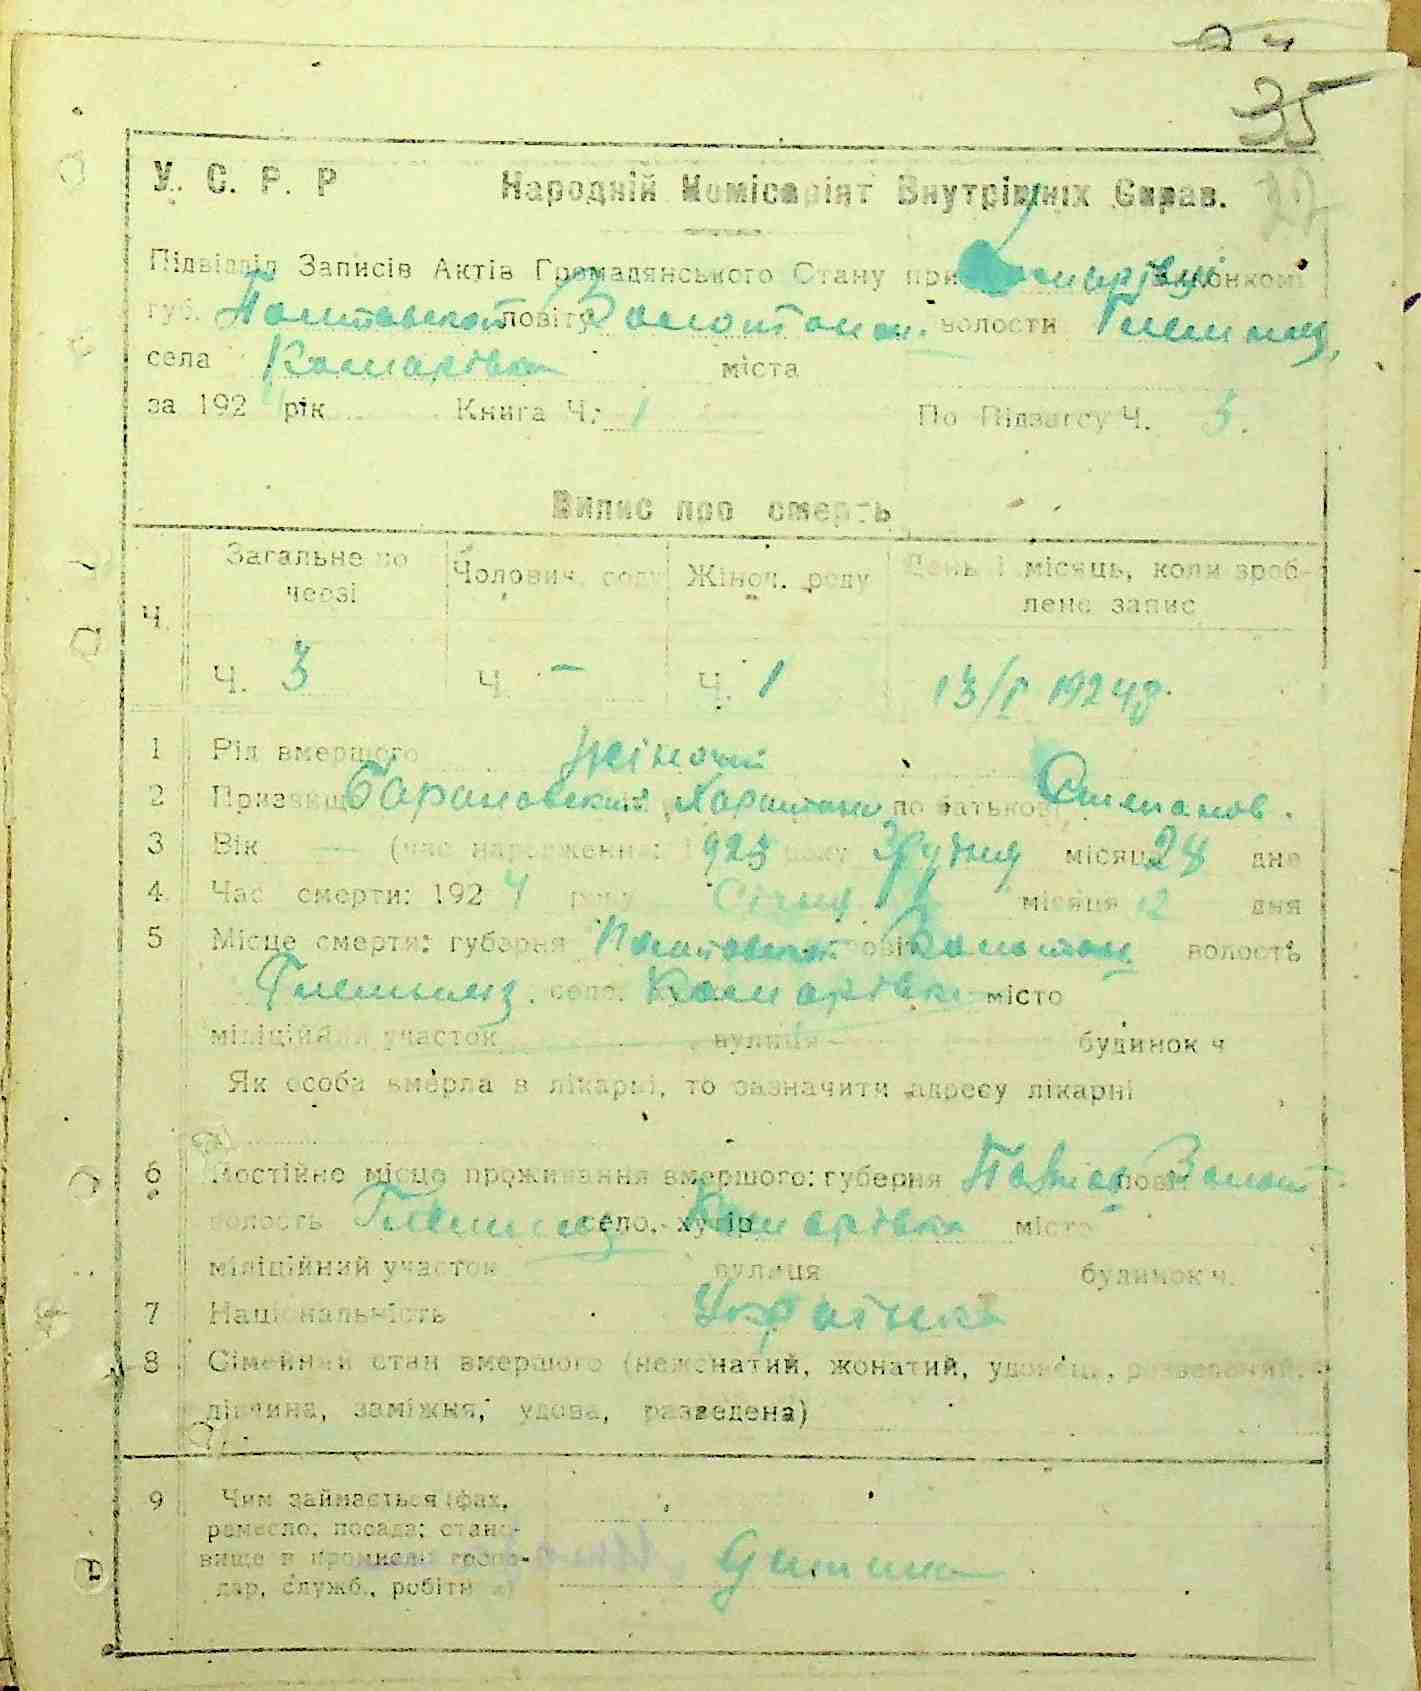 35
У. С. Р. Р Народній Комісаріят Внутрішніх Справ.
Підвідділ Записів Актів Громадянського Стану при
губ. Полтавської повіту Золотонош. волости Гельмяз,
села Комарівка міста
за 1924 рік Книга Ч. 1 По Підзагсу Ч. 3.
Випис про смерть
Ч. Загальне по черзі Чоловіч. роду Жіноч. роду День і місяць, коли зроблено запис
Ч. 3 Ч. — Ч. 1 13/I 1924 р.
1 Рід вмершого жіночий
2 Призвищ Барановський по батькові Степанов.
3 Вік — (час народження: 1923 року Грудня місяця 28 дня
4 Час смерти: 1924 року Січня місяця 12 дня
5 Місце смерти: губерня Полтавської повіт Золотон волость
Гельмяз. село. Комарівка місто
міліційний участок вулиця будинок ч
Як особа вмерла в лікарні, то зазначити адресу лікарні
6 Постійне місце проживання вмершого: губерня Полтав повіт Золот
волость Гельмяз село, хутір Комарівка місто
міліційний участок вулиця будинок ч.
7 Національність Українка
8 Сімейний стан вмершого (неженатий, жонатий, удовець, розведений,
дівчина, заміжня, удова, разведена)
9 Чим займається (фах,
ремесло, посада; стано-
вище в промислі госпо-
дар, служб., робітн дитина